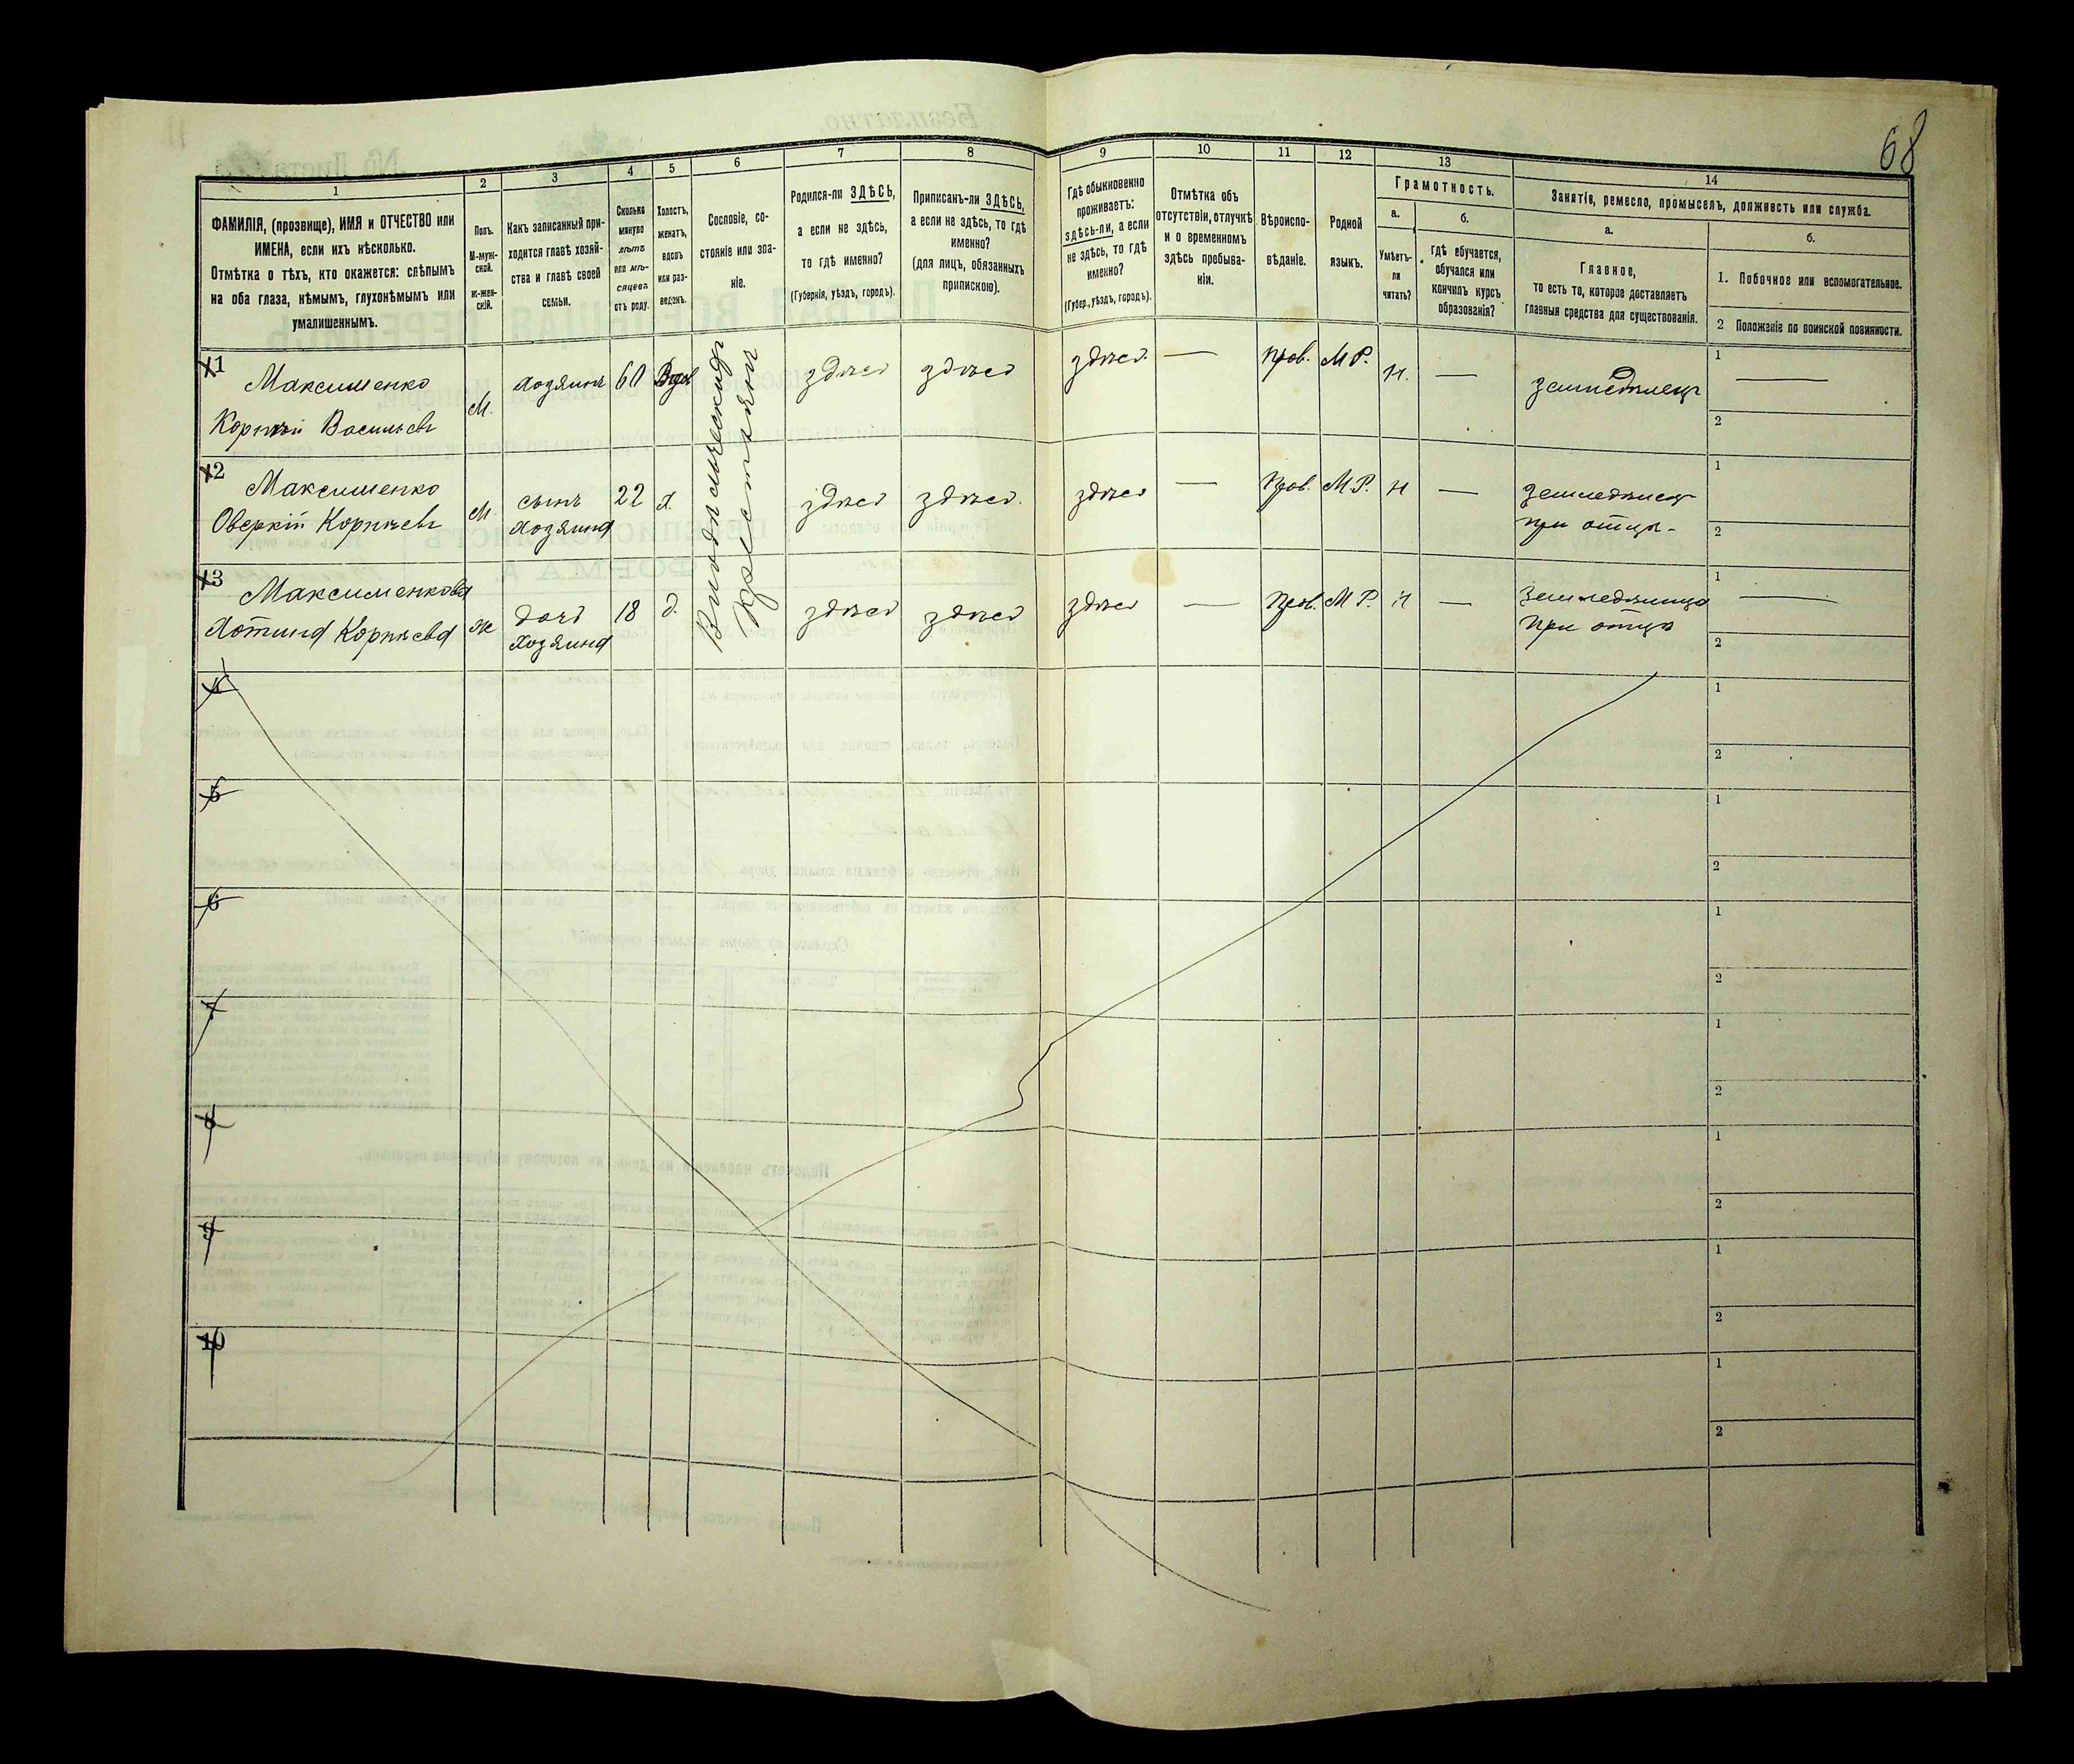 68
1
2
3
4
5
6
7
8
9
10
11
12
13
14
ФАМИЛІЯ, (прозвище), ИМЯ и ОТЧЕСТВО или
ИМЕНА, если ихъ нѣсколько.
Отмѣтка о тѣхъ, кто окажется: слѣпымъ
на оба глаза, нѣмымъ, глухонѣмымъ или
умалишеннымъ.
Полъ.
М-муж-
ской.
Ж-жен-
скій.
Какъ записанный при-
ходится главѣ хозяй-
ства и главѣ своей
семьи.
Сколько
минуло
лѣтъ
или мѣ-
сяцевъ
отъ роду.
Холостъ,
женатъ,
вдовъ
или раз-
веденъ.
Сословіе, со-
стояніе или зва-
ніе.
Родился-ли ЗДѢСЬ,
а если не здѣсь,
то гдѣ именно?
(Губернія, уѣздъ, городъ).
Приписанъ-ли ЗДѢСЬ,
а если не здѣсь, то гдѣ
именно?
(для лицъ, обязанныхъ
припискою).
Гдѣ обыкновенно
проживаетъ:
здѣсь-ли, а если
не здѣсь, то гдѣ
именно?
(Губер., уѣздъ, городъ).
Отмѣтка объ
отсутствіи, отлучкѣ
и о временномъ
здѣсь пребыва-
ніи.
Вѣроиспо-
вѣданіе.
Родной
языкъ.
Грамотность.
а.
Умѣетъ-
ли
читать?
б.
гдѣ обучается,
обучался или
кончилъ курсъ
образованія?
Занятіе, ремесло, промыселъ, должность или служба.
а.
Главное,
то есть то, которое доставляетъ
главныя средства для существованія.
б.
1. Побочное или вспомогательное.
2 Положеніе по воинской повинности.
1
Максименко
Корнѣй Васильевъ
М.
хозяинъ
60
Вдов
Владѣльческій
Крестьянинъ
здѣсь
здѣсь
здѣсь
—
прав.
М Р.
Н.
—
земледѣлецъ
1 —
2
2
Максименко
Оверкій Корнѣевъ
М.
сынъ
хозяина
22
х.
здѣсь
здѣсь.
здѣсь
—
Прав.
М Р.
Н
—
земледѣлецъ
при отцѣ-
1
2
3
Максименкова
Хотина Корнѣева
Ж
дочь
хозяина
18
д.
здѣсь
здѣсь
здѣсь
—
Прав.
М Р.
Н
—
Земледѣлица
При отцѣ
1 —
2
4
1
2
5
1
2
6
1
2
7
1
2
8
1
2
9
1
2
10
1
2